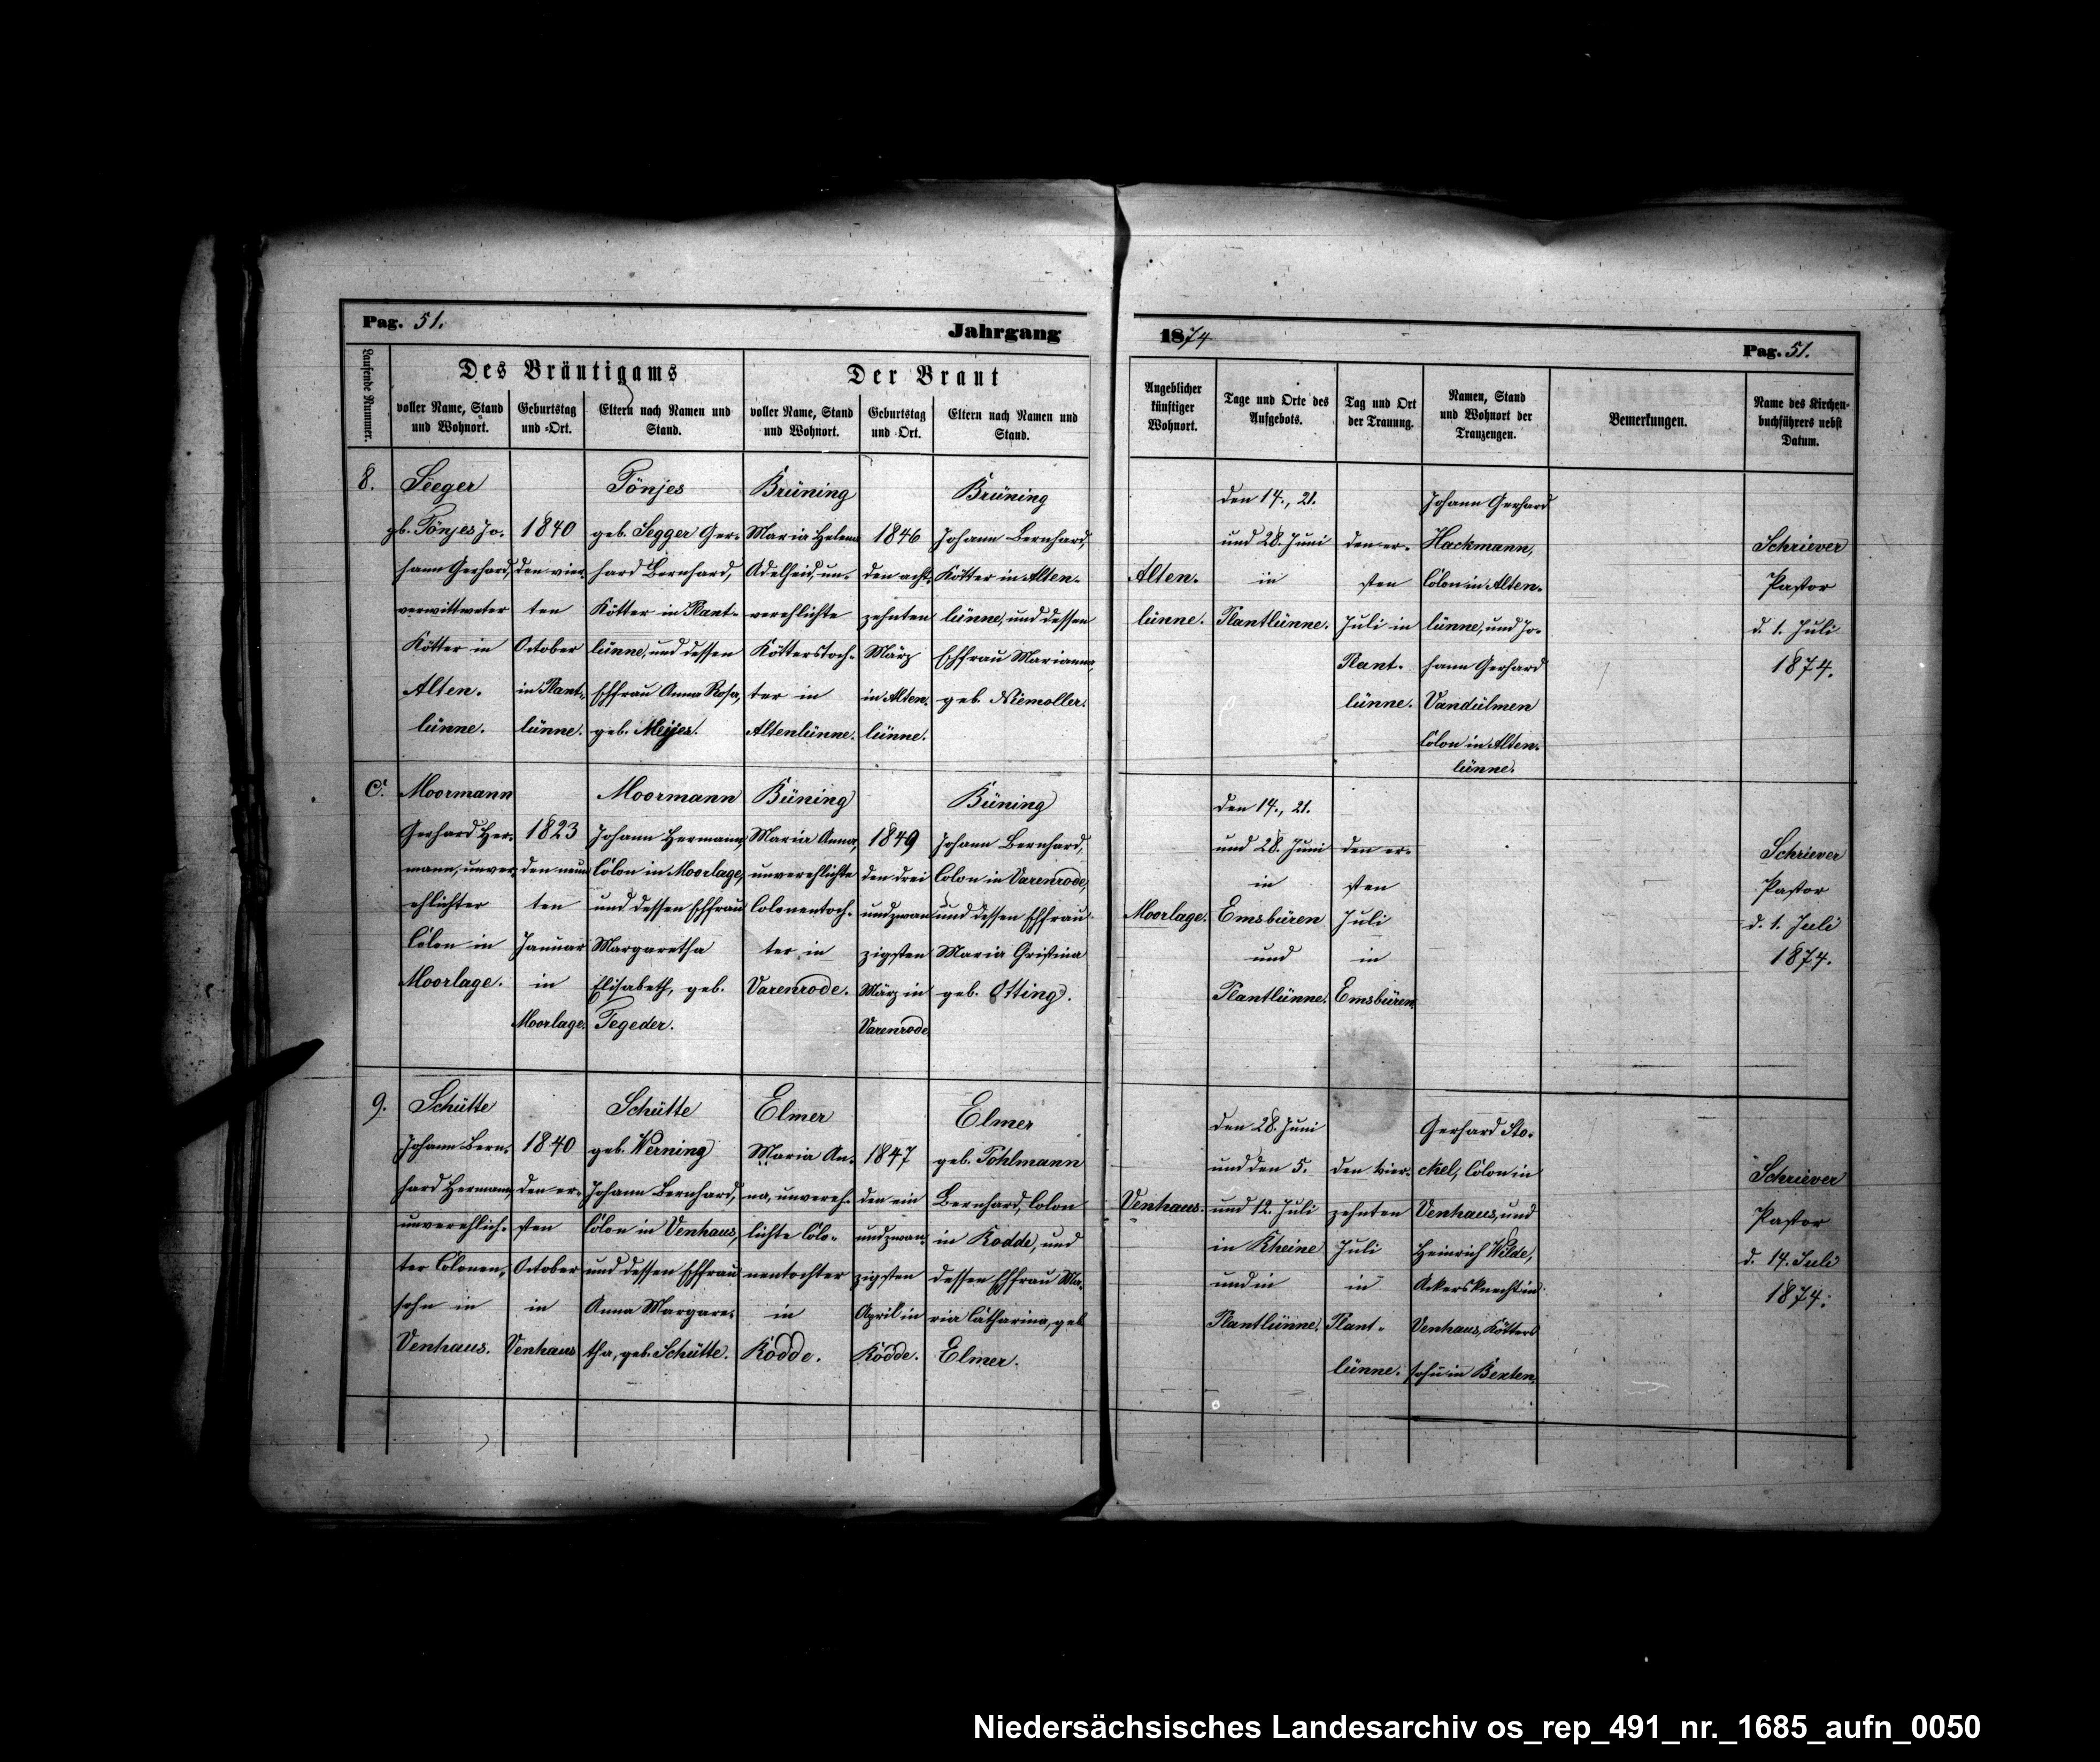 Pag. 51.
Jahrgang
1874
Pag. 51.
Laufende Nummer.
Des Bräutigams
voller Name, Stand
und Wohnort.
Geburtstag
und -Ort.
Eltern nach Namen und
Stand.
Der Braut
voller Name, Stand
und Wohnort.
Geburtstag
und -Ort.
Eltern nach Namen und
Stand.
Angeblicher
künftiger
Wohnort.
Tage und Orte des
Aufgebots.
Tag und Ort
der Trauung.
Namen, Stand
und Wohnort der
Trauzeugen.
Bemerkungen.
Name des Kirchen-
buchführers nebst
Datum.
8.
Seeger
gb. Tönjes Jo-
hann Gerhard,
verwittweter
Kötter in
Alten-
lünne.
1840
den vier-
ten
October
in Plant-
lünne.
Tönjes
geb. Segger Ger-
hard Bernhard,
Kötter in Plant-
lünne, und dessen
Ehfrau Anna Rosa,
geb.
Brüning
Maria Helena
Adelheid, un-
verehlichte
Kötterstoch-
ter in
Altenlünne.
1846
den acht-
zehnten
März
in Alten-
lünne.
Brüning
Johann Bernhard,
Kötter in Alten-
lünne, und dessen
Ehfrau Marianna,
geb. Niemoller.
Alten-
lünne.
den 14., 21.
und 28. Juni
in
Plantlünne.
den er-
sten
Juli in
Plant-
lünne.
Johann Gerhard
Hackmann,
Colon in Alten-
lünne, und Jo-
hann Gerhard
Vandülmen
Colon in Alten-
lünne.
Schriever
Pastor
d. 1. Juli
1874.
C.
Moormann
Gerhard Her-
mann, unver-
ehlichter
Colon in
Moorlage.
1823
den neun-
ten
Januar
in
Moorlage.
Moormann
Johann Hermann,
Colon in Moorlage,
und dessen Ehfrau
Margaretha
Elisabeth, geb.
Tegeder.
Büning
Maria Anna,
unverehlichte
Colonentoch-
ter in
Varenrode.
1849
den drei
undzwan-
zigsten
März in
Varenrode.
Büning
Johann Bernhard,
Colon in Varenrode,
und dessen Ehfrau
Maria Christina
geb. Otting.
Moorlage.
den 14., 21.
und 28. Juni
in
Emsbüren
und
Plantlünne.
den er-
sten
Juli
in
Emsbüren.
Schriever
Pastor
d. 1. Juli
1874.
9.
Schütte
Johann Bern-
hard Hermann,
unverehlich-
ter Colonen-
sohn in
Venhaus.
1840
den er-
sten
October
in
Venhaus
Schütte
geb. Werning
Johann Bernhard,
Colon in Venhaus,
und dessen Ehfrau
Anna Margare-
tha, geb. Schütte.
Elmer
Maria An-
na, unvereh-
lichte Colo-
nentochter
in
Rodde.
1847
den ein
undzwan-
zigsten
April in
Rodde.
Elmer
geb. Pohlmann
Bernhard, Colon
in Rodde, und
dessen Ehfrau Ma-
ria Catharina, geb
Elmer.
Venhaus.
den 28. Juni
und den 5.
und 12. Juli
in Rheine
und in
Plantlünne.
den vier-
zehnten
Juli
in
Plant-
lünne.
Gerhard Sto-
ckel, Colon in
Venhaus, und
Heinrich Wilde,
Ackersknecht in
Venhaus, Kötters
sohn in Bexten.
Schriever
Pastor
d. 14. Juli
1874.
Niedersächsisches Landesarchiv os_rep_491_nr._1685_aufn_0050